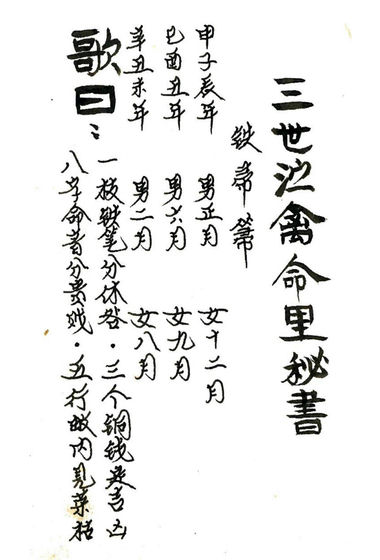 三世禽命里秘書
铁帚箒
甲子辰年 男正月 女十二月
巳酉丑年 男六月 女九月
辛丑未年 男二月 女八月
歌曰：
一枝铁笔分休咎·三个铜钱定吉凶
八字命者分贵贱·五行数内見荣枯